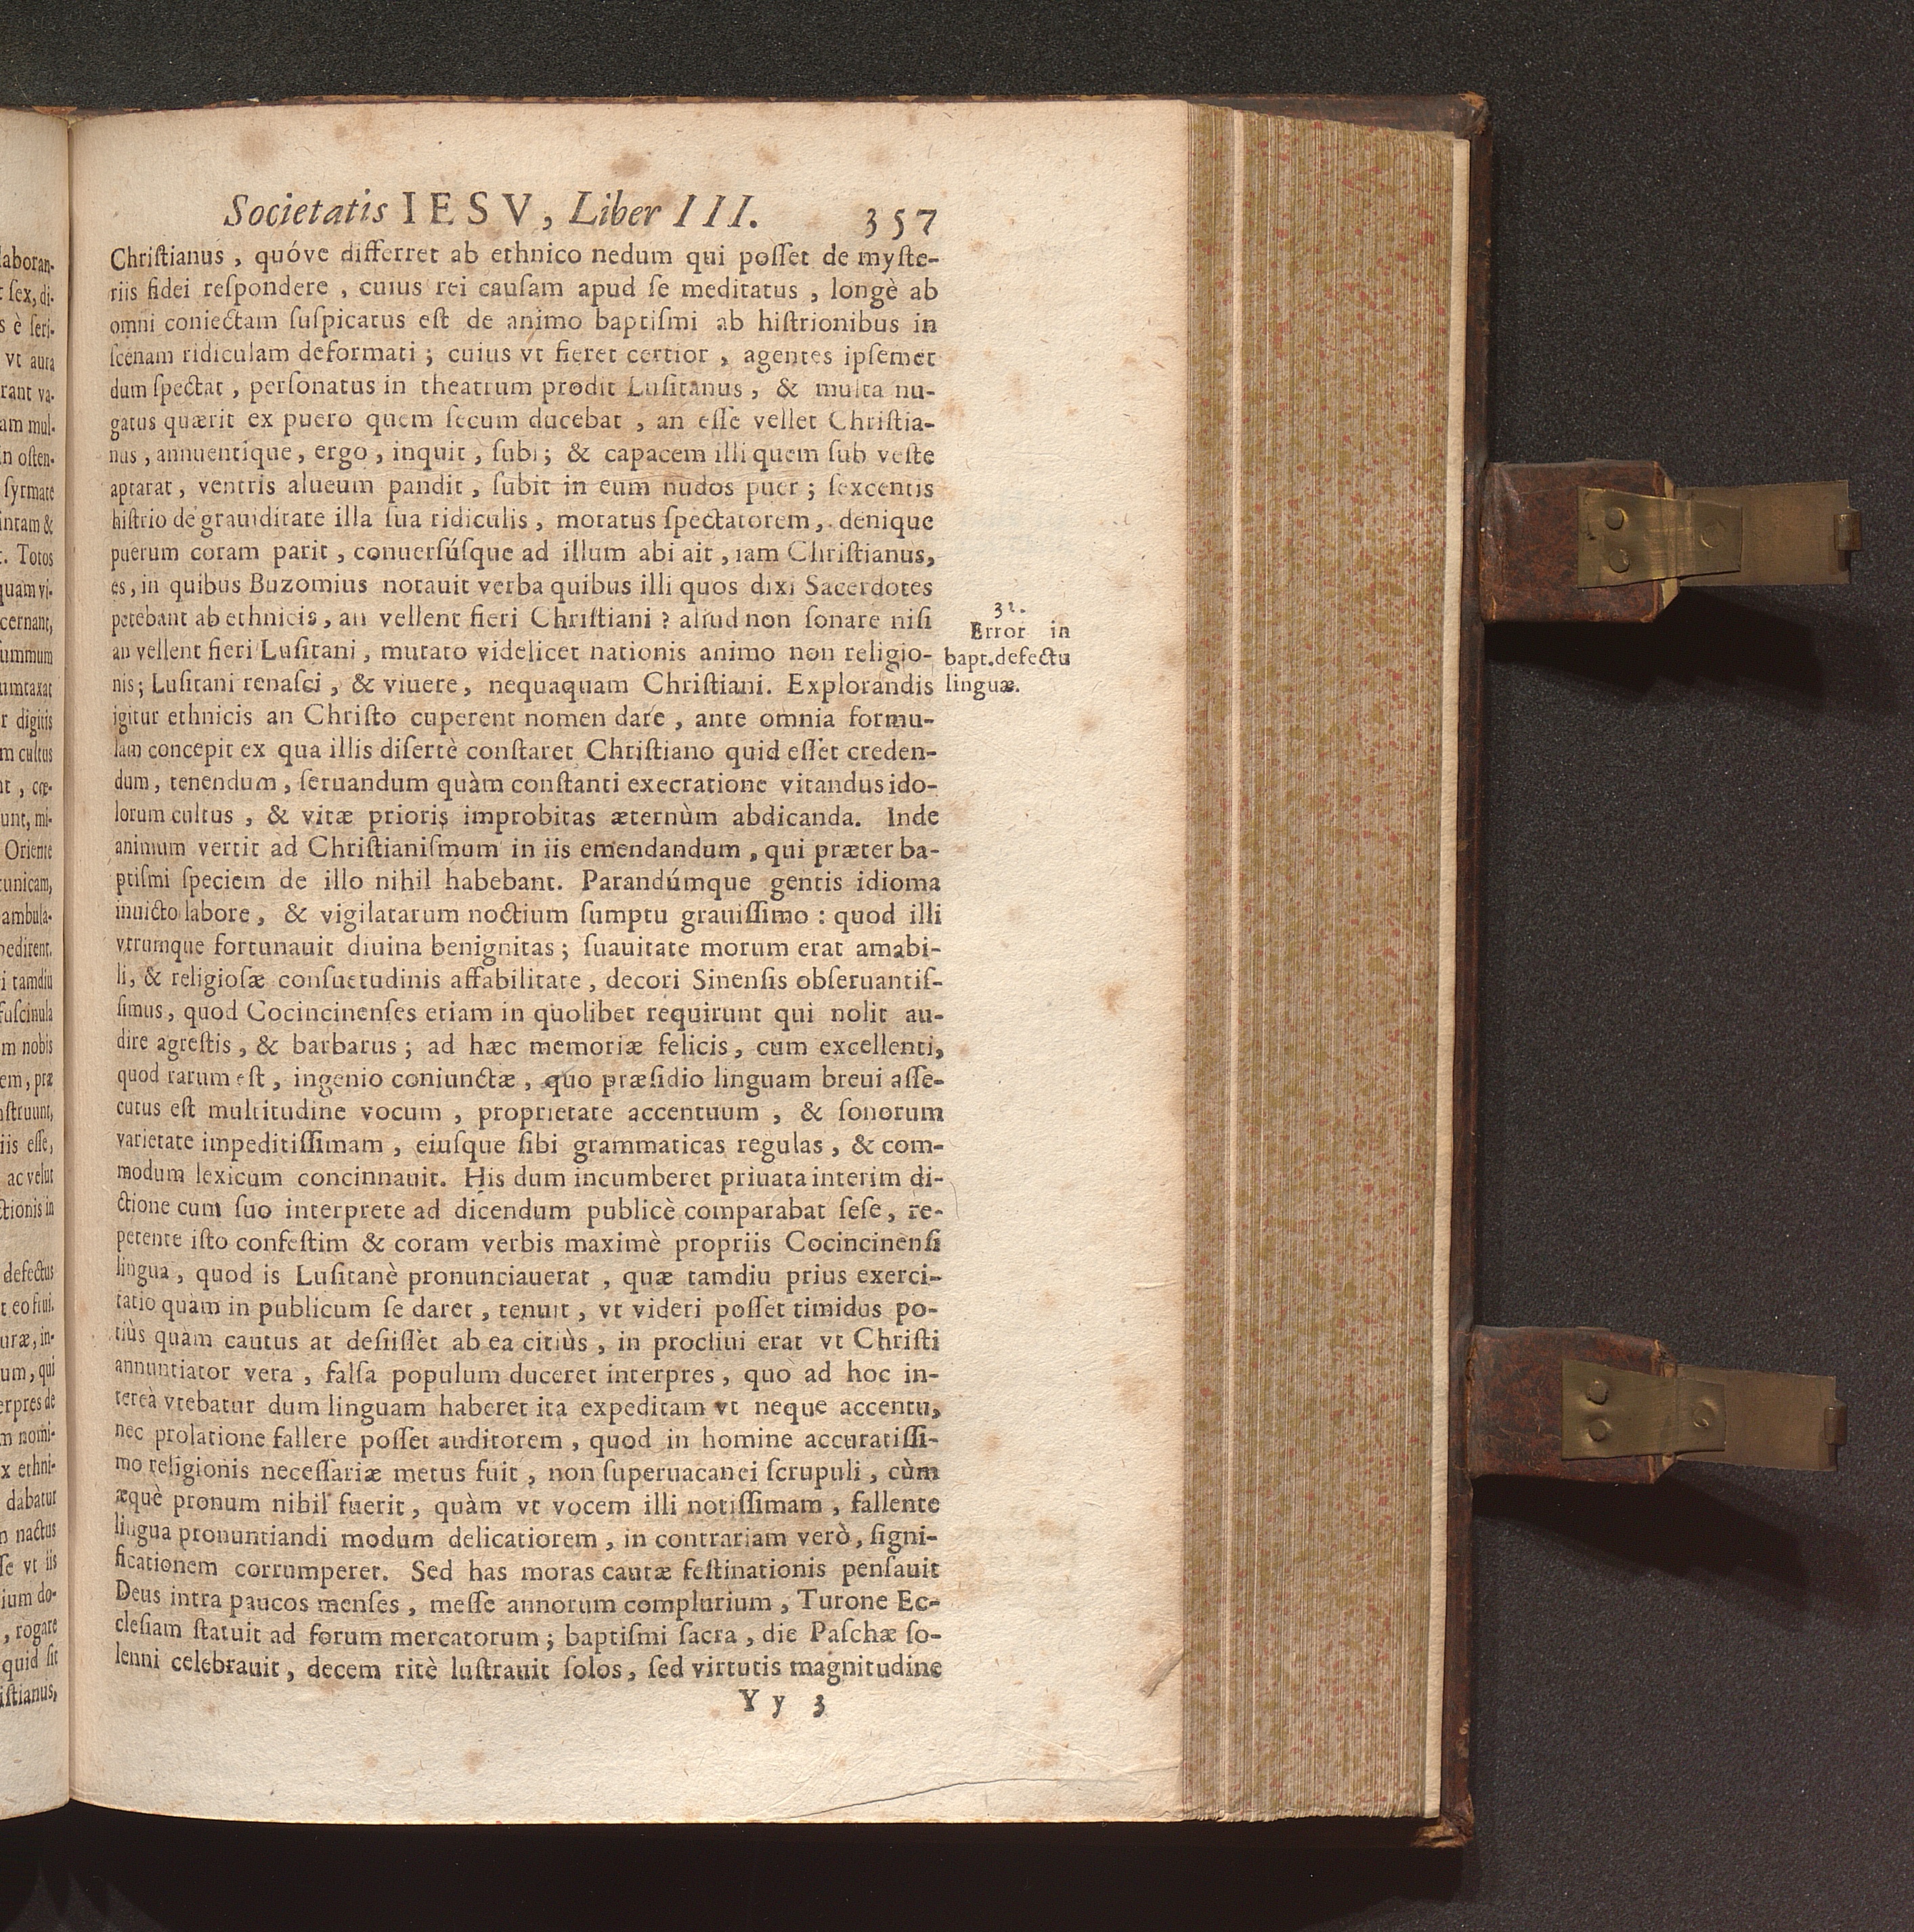 Societatis IESV, Liber III. 357
Chriſtianus, quóve differret ab ethnico nedum qui poſſet de myſte-
riis fidei reſpondere, cuius rei cauſam apud ſe meditatus, longè ab
omni coniectam ſuſpicatus eſt de animo baptiſmi ab hiſtrionibus in
ſcenam ridiculam deformati; cuius vt fieret certior, agentes ipſemet
dum ſpectat, perſonatus in theatrum prodit Luſitanus, & multa nu-
gatus quærit ex puero quem ſecum ducebat, an eſſe vellet Chriſtia-
nus, annuentique, ergo, inquit, ſubi; & capacem illi quem ſub veſte
aptarat, ventris alueum pandit, ſubit in eum nudos puer; ſexcentis
hiſtrio de grauiditate illa ſua ridiculis, moratus ſpectatorem, denique
puerum coram parit, conuerſúſque ad illum abi ait, iam Chriſtianus,
es, in quibus Buzomius notauit verba quibus illi quos dixi Sacerdotes
petebant ab ethnicis, an vellent fieri Chriſtiani? aliud non ſonare niſi
an vellent fieri Luſitani, mutato videlicet nationis animo non religio-
nis; Luſitani renaſci, & viuere, nequaquam Chriſtiani. Explorandis
igitur ethnicis an Chriſto cuperent nomen dare, ante omnia formu-
lam concepit ex qua illis diſertè conſtaret Chriſtiano quid eſſet creden-
dum, tenendum, ſeruandum quàm conſtanti execratione vitandus ido-
lorum cultus, & vitæ prioris improbitas æternùm abdicanda. Inde
animum vertit ad Chriſtianiſmum in iis emendandum, qui præter ba-
ptiſmi ſpeciem de illo nihil habebant. Parandúmque gentis idioma
inuicto labore, & vigilatarum noctium ſumptu grauiſſimo: quod illi
vtrumque fortunauit diuina benignitas; ſuauitate morum erat amabi-
li, & religioſæ conſuetudinis affabilitate, decori Sinenſis obſeruantiſ-
ſimus, quod Cocincinenſes etiam in quolibet requirunt qui nolit au-
dire agreſtis, & barbarus; ad hæc memoriæ felicis, cum excellenti,
quod rarum eſt, ingenio coniunctæ, quo præſidio linguam breui aſſe-
cutus eſt multitudine vocum, proprietate accentuum, & ſonorum
varietate impeditiſſimam, eiuſque ſibi grammaticas regulas, & com-
modum lexicum concinnauit. His dum incumberet priuata interim di-
ctione cum ſuo interprete ad dicendum publicè comparabat ſeſe, re-
petente iſto confeſtim & coram verbis maximè propriis Cocincinenſi
lingua, quod is Luſitanè pronunciauerat, quæ tamdiu prius exerci-
tatio quàm in publicum ſe daret, tenuit, vt videri poſſet timidus po-
tiùs quàm cautus at deſiiſſet ab ea citiùs, in procliui erat vt Chriſti
annuntiator vera, falſa populum duceret interpres, quo ad hoc in-
tereà vtebatur dum linguam haberet ita expeditam vt neque accentu,
nec prolatione fallere poſſet auditorem, quod in homine accuratiſſi-
mo religionis neceſſariæ metus fuit, non ſuperuacanei ſcrupuli, cùm
æquè pronum nihil fuerit, quàm vt vocem illi notiſſimam, fallente
lingua pronuntiandi modum delicatiorem, in contrariam verò, ſigni-
ficationem corrumperet. Sed has moras cautæ feſtinationis penſauit
Deus intra paucos menſes, meſſe annorum complurium, Turone Ec-
cleſiam ſtatuit ad forum mercatorum; baptiſmi ſacra, die Paſchæ ſo-
lenni celebrauit, decem ritè luſtrauit ſolos, ſed virtutis magnitudine
Yy 3
31.
Error in
bapt.defectu
linguæ.